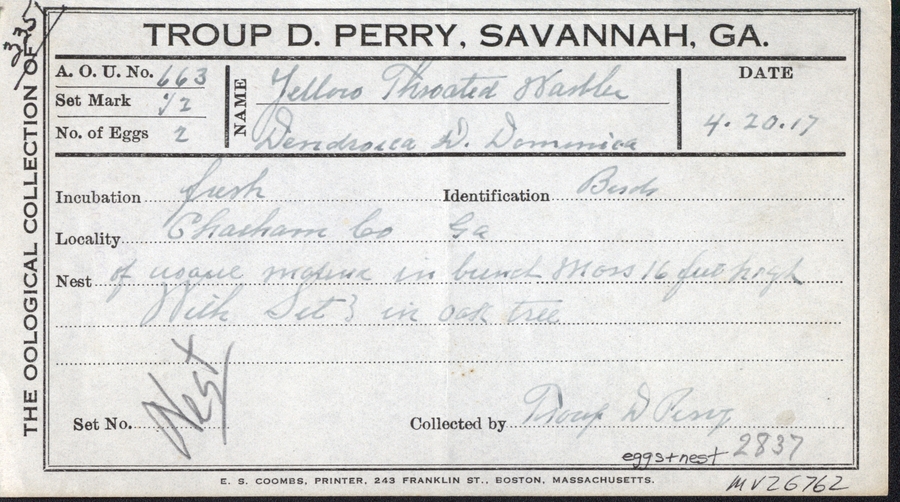 335
THE OOLOGICAL COLLECTION OF
TROUP D. PERRY, SAVANNAH, GA.
A. O. U. No. 663
Set Mark 1/2
No. of Eggs 2
NAME
Yellow Throated Warbler
Dendroica D. Dominica
DATE
4.20.17
Incubation fresh
Identification Birds
Locality Chatham Co Ga
Nest of usual in bunch Moss 16 feet high
With Set 3 in oak tree
Set No. Nest
Collected by Troup D Perry
eggs+nest 2837
MV26762
E. S. COOMBS, PRINTER, 243 FRANKLIN ST., BOSTON, MASSACHUSETTS.